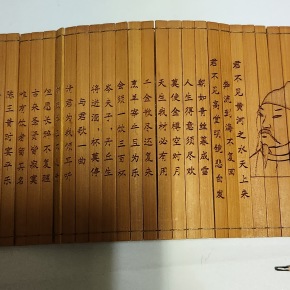 君不见黄河之水天上来
奔流到海不复回
君不见高堂明镜悲白发
朝如青丝暮成雪
人生得意须尽欢
莫使金樽空对月
天生我材必有用
千金散尽还复来
烹羊宰牛且为乐
会须一饮三百杯
岑夫子，丹丘生
将进酒，杯莫停
与君歌一曲
请君为我倾耳听
但愿长醉不复醒
古来圣贤皆寂寞
惟有饮者留其名
陈王昔时宴平乐